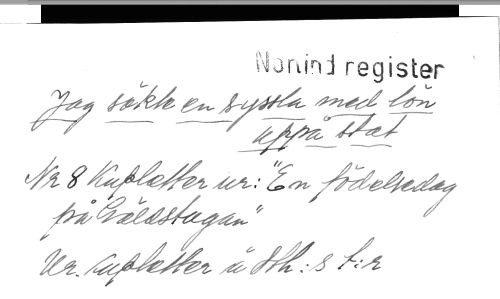 Nonind register
Jag sökte en syssla med lön
uppå stat
Nr 8 Kupletter ur: "En födelsedag
på Gäldstugan"
Ur. Kupletter å Sth:s t:r